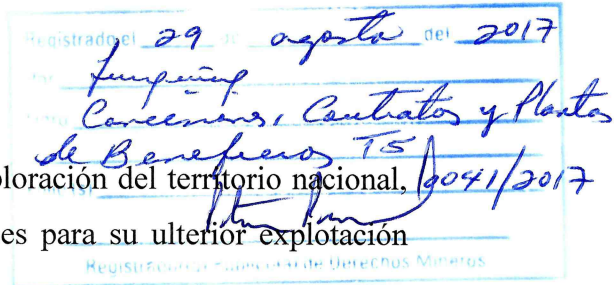 Registrado el 29 de agosto del 2017
Por
Concesiones, Contratos y Plantas
de Beneficios T5
ploración del territorio nacional, 2041/2017
es para su ulterior explotación
Registrador Especial de Derechos Mineros